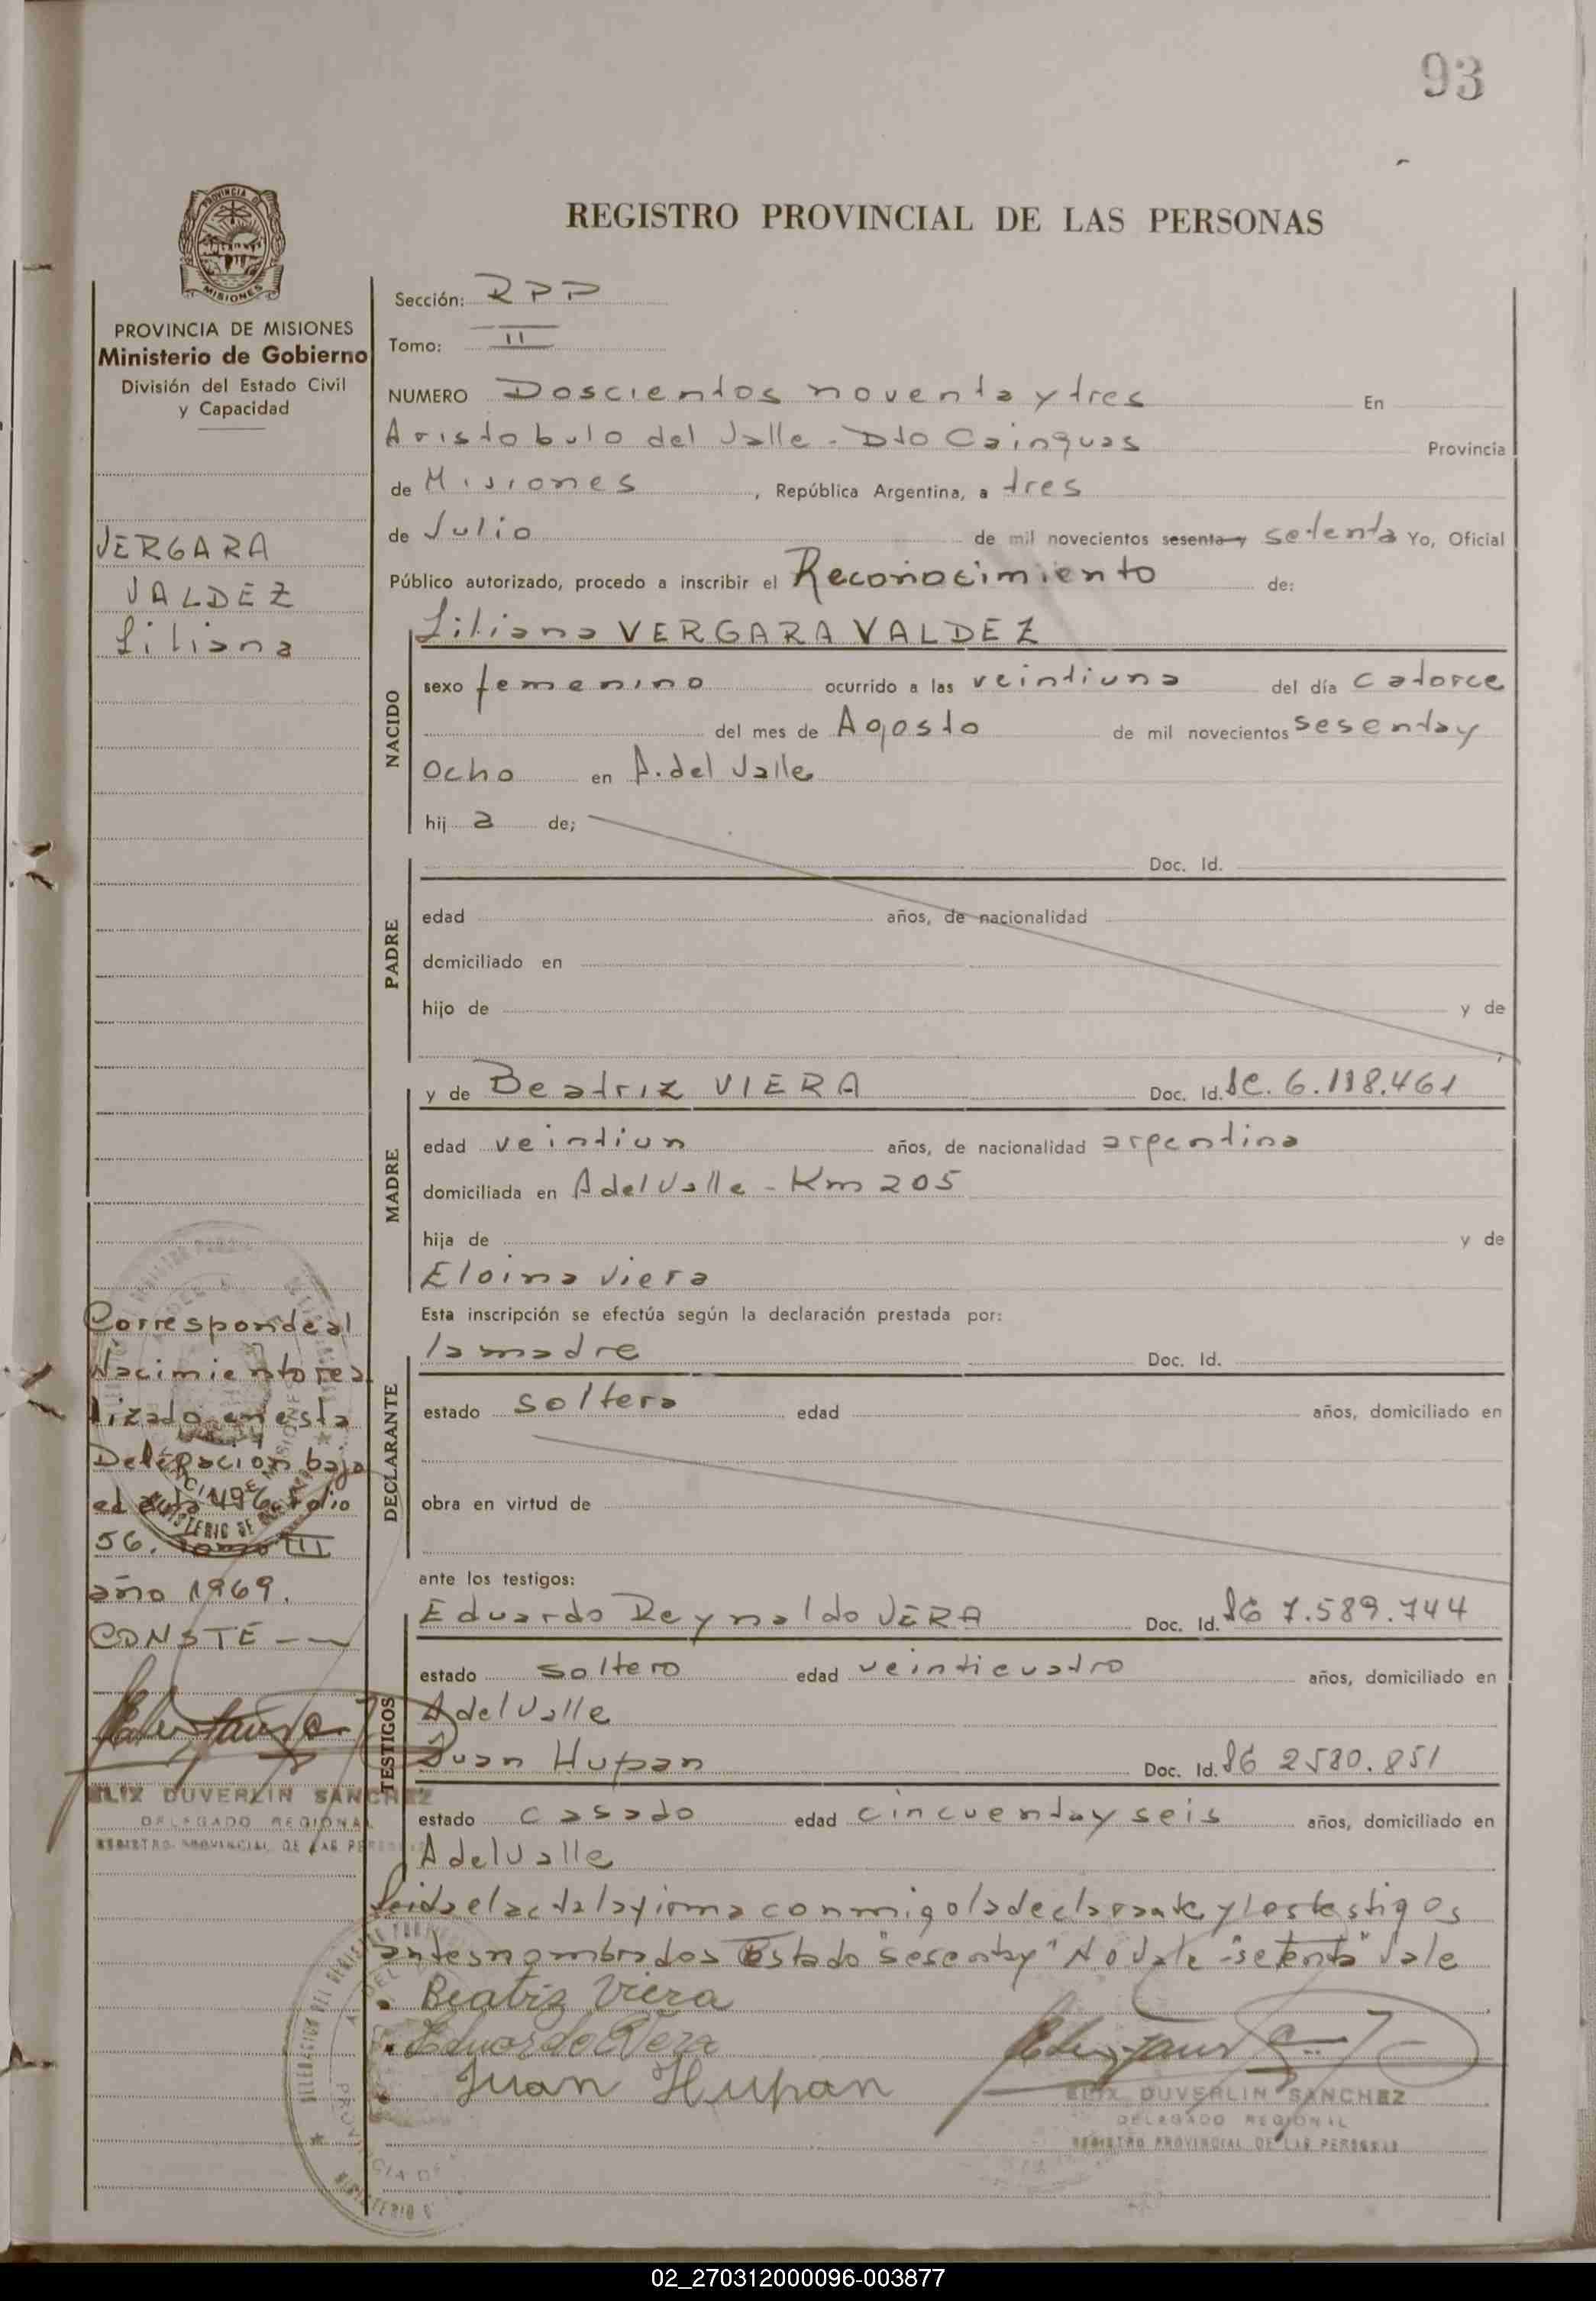 93
REGISTRO PROVINCIAL DE LAS PERSONAS
PROVINCIA DE MISIONES
Ministerio de Gobierno
División del Estado Civil
y Capacidad
VERGARA
VALDEZ
Liliana
Corresponde al
Nacimiento rea
lizado en esta
Delegacion bajo
el acta 496 folio
56. tomo III
año 1969.
CONSTE --
ELIX DUVERLIN SANCHEZ
DELEGADO REGIONAL
REGISTRO PROVINCIAL DE LAS PERSONAS
Sección: RPP
Tomo: II
NUMERO Doscientos noventa y tres En
Aristobulo del Valle - Dto Cainguas Provincia
de Misiones, República Argentina, a tres
de Julio de mil novecientos sesenta y setenta Yo, Oficial
Público autorizado, procedo a inscribir el Reconocimiento de:
NACIDO
Liliana VERGARA VALDEZ
sexo femenino ocurrido a las veintiuna del día catorce
del mes de Agosto de mil novecientos sesenta y
ocho en A. del Valle
hij a de;
PADRE
Doc. Id.
edad años, de nacionalidad
domiciliado en
hijo de y de
MADRE
y de Beatriz VIERA Doc. Id. LC. 6.118.461
edad veintiun años, de nacionalidad argentina
domiciliada en A del Valle - Km 205
hija de y de
Eloina Viera
Esta inscripción se efectúa según la declaración prestada por:
DECLARANTE
la madre Doc. Id.
estado soltera edad años, domiciliado en
obra en virtud de
ante los testigos:
TESTIGOS
Eduardo Reynaldo VERA Doc. Id. 7.589.744
estado soltero edad veinticuatro años, domiciliado en
A del Valle
Juan Hupan Doc. Id. 2580.851
estado casado edad cincuenta y seis años, domiciliado en
A del Valle
Leida el acta la firma conmigo la declarante y los testigos
antes nombrados Testado "sesenta y" No Vale "setenta" Vale
Beatriz Viera
Eduardo R Vera
Juan Hupan
ELIX DUVERLIN SANCHEZ
DELEGADO REGIONAL
REGISTRO PROVINCIAL DE LAS PERSONAS
02_270312000096-003877